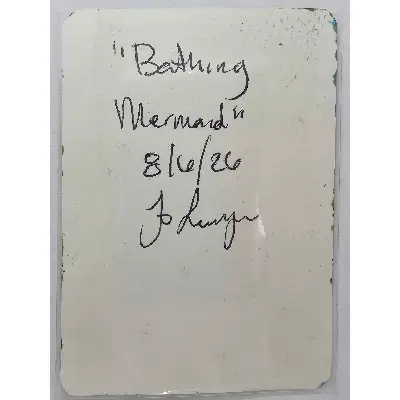 "Bathing
Mermaid"
8/6/26
Jo